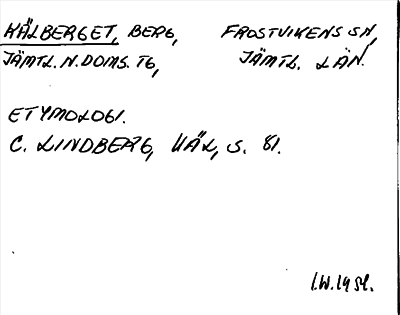 KÄLBERGET, BERG, FROSTVIKENS SN,
JÄMTL. N. DOMS. TG, JÄMTL. LÄN.
ETYMOLOGI.
C. LINDBERG, KÄL, S. 81.
I.W. 1951.